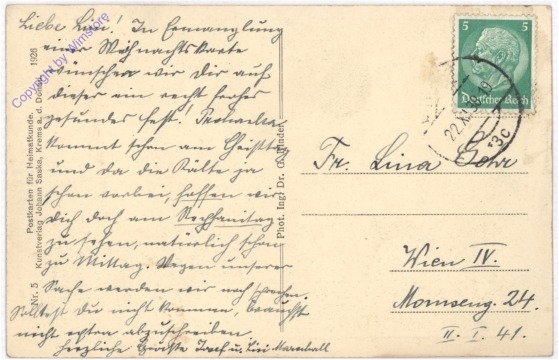 Liebe Lini! In Ermanglung
einer Weihnachtskarte
wünschen wir Dir auf
dieser ein recht frohes
gesundes Fest!
kommt schon am Christtag
und da die Kälte ja
schon vorbei, hoffen wir
Dich doch am Stephanitag
zu sehen, natürlich schon
zu Mittag. Wegen unserer
Sache werden wir noch sprechen.
Solltest Du nicht kommen, brauchst
nicht extra abzuschreiben.
Herzliche Grüße Josef u. Lisi
Nr. 5
Postkarten für Heimatkunde
1926
Kunstverlag Johann Saska, Krems a. d. Donau
Copyright by Wimstore
Phot. Ing. Dr.
5 5
Deutsches Reich
22.XII
Fr. Lina
Wien IV.
Momseng. 24.
II. I. 41.